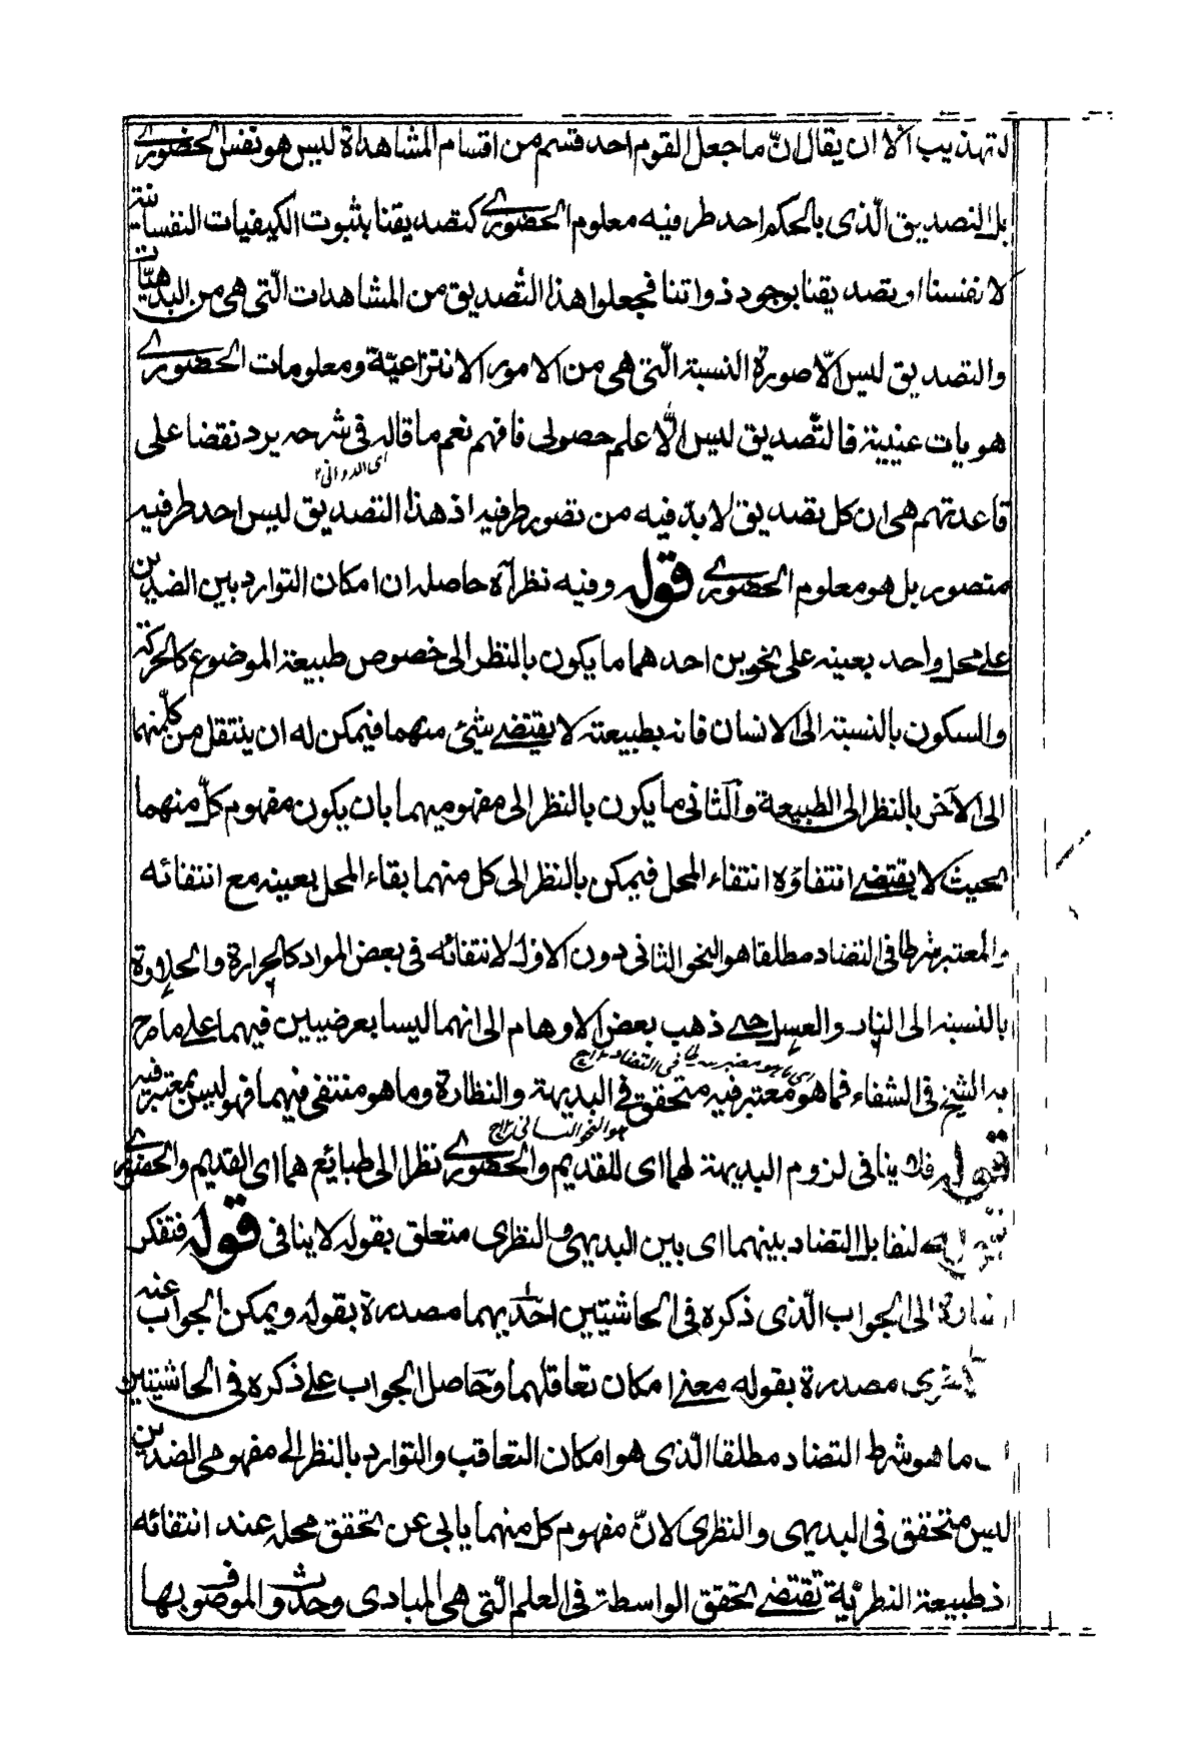 لتهذيب الا ان يقال انّ ما جعل القوم احد قسم من اقسام المشاهداة ليس هو نفس الحضورى
بل التصديق الّذى بالحكم احد طرفيه معلوم الحضورى كتصديقنا بثبوت الكيفيات النفسانية
لا نفسنا او تصديقنا بوجود ذواتنا فجعلوا هذا التّصديق من المشاهدات الّتى هى من البديهيّات
والتصديق ليس الّا صورة النسبة الّتى هى من الامور الانتزاعيّة ومعلومات الحضورى
هويات عينية فالتّصديق ليس الّا علم حصولى فافهم نعم ما قاله فى شرحه يرد نقضا على
اى الدوانى ١٢
قاعدتهم هى ان كل تصديق لا بدّ فيه من تصور طرفيه اذ هذا التصديق ليس احد طرفيه
متصور بل هو معلوم الحضورى قوله وفيه نظر آه حاصله ان امكان التوارد بين الضدين
على محل واحد بعينه على نحوين احدهما ما يكون بالنظر الى خصوص طبيعة الموضوع كالحركة
والسكون بالنسبة الى الانسان فانه بطبيعته لا يقتضى شيئ منهما فيمكن له ان ينتقل من كلّ منهما
الى الآخر بالنظر الى الطبيعة والثانى ما يكون بالنظر الى مفهوميهما بان يكون مفهوم كلّ منهما
بحيث لا يقتضى انتفاؤه انتفاء المحل فيمكن بالنظر الى كل منهما بقاء المحل بعينه مع انتفائه
والمعتبر شرطا فى التضاد مطلقا هو النحو الثانى دون الاول لانتفائه فى بعض المواد كالحرارة والحلاوة
بالنسبة الى النار والعسل حتى ذهب بعض الاوهام الى انهما ليسا بعرضيين فيهما على ما صرح
به الشيخ فى الشفاء فما هو معتبر فيه متحقق فى البديهة والنظارة وما هو منتفى فيهما فهو ليس بمعتبر فيه
هو النحو الثانى
قوله فلا ينافى لزوم البديهة لهما اى للقديم والحضورى نظرا الى طبائع هما اى القديم والحضورى
قوله لتقابل التضاد بينهما اى بين البديهى والنظرى متعلق بقوله لا ينافى قوله فتفكر
اشارة الى الجواب الّذى ذكره فى الحاشيتين احديهما مصدرة بقوله ويمكن الجواب عنه
مصدرة بقوله معنى امكان تعاقبهما وحاصل الجواب على ذكره فى الحاشيتين
ما هو شرط التضاد مطلقا الّذى هو امكان التعاقب والتوارد بالنظر الى مفهومى الضدين
ليس متحقق فى البديهى والنظرى لانّ مفهوم كل منهما يابى عن تحقق محله عند انتفائه
اذ طبيعة النظرية تقتضى تحقق الواسطة فى العلم الّتى هى المبادى وحدث والموضوبها